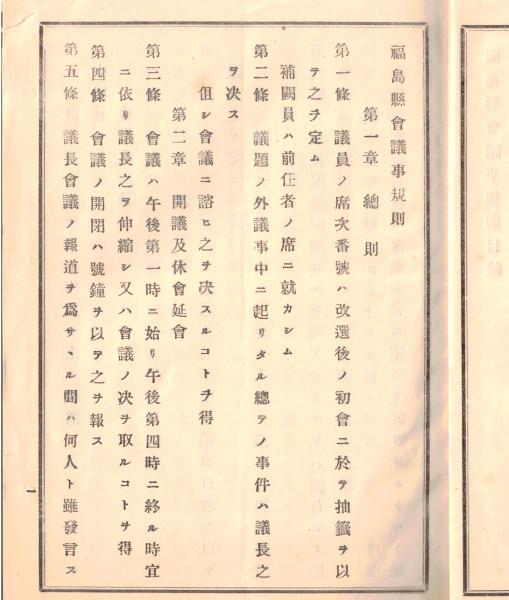 福島縣會議事規則
第一章　總則
第一條　議員ノ席次番號ハ改選後ノ初會ニ於テ抽籤ヲ以
テ之ヲ定ム
補闕員ハ前任者ノ席ニ就カシム
第二條　議題ノ外議事中ニ起リタル總テノ事件ハ議長之
ヲ决ス
但シ會議ニ諮ヒ之ヲ决スルコトヲ得
第二章　開議及休會延會
第三條　會議ハ午後第一時ニ始リ午後第四時ニ終ル時宜
ニ依リ議長之ヲ伸縮シ又ハ會議ノ决ヲ取ルコトヲ得
第四條　會議ノ開閉ハ號鐘ヲ以テ之ヲ報ス
第五條　議長會議ノ報道ヲ爲サヽル間ハ何人ト雖發言ス
一